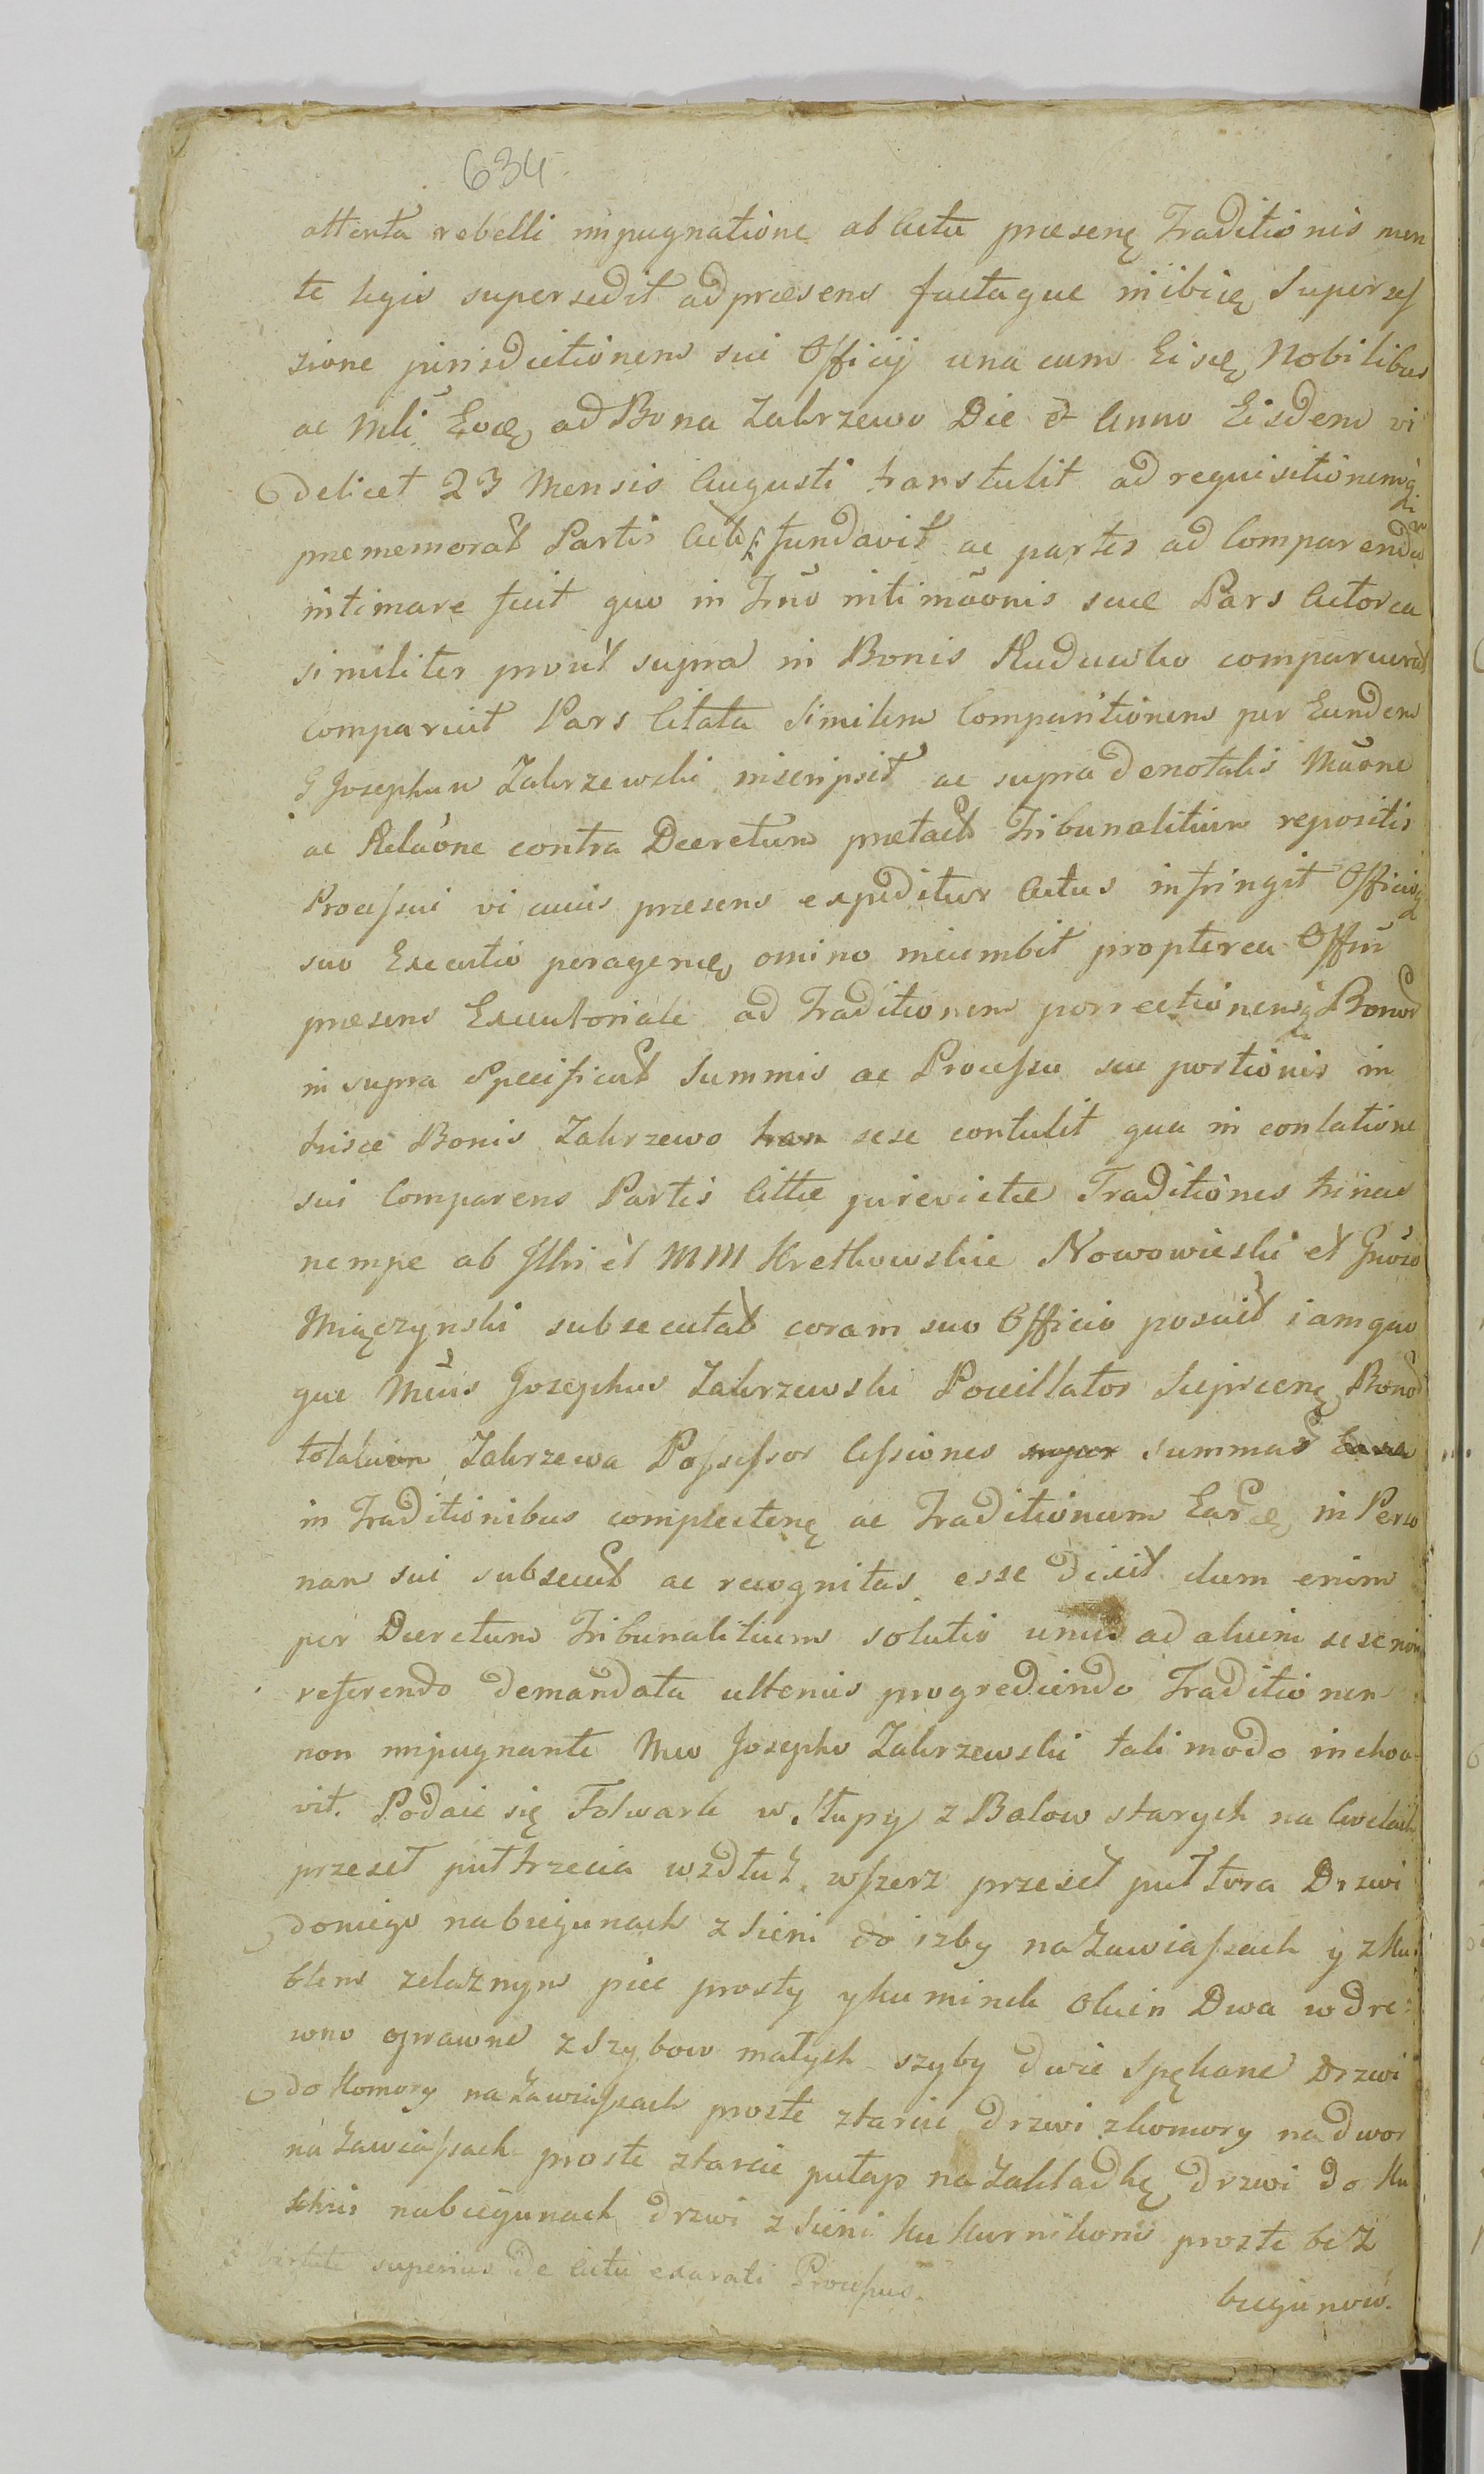 634
attenta rebelli impugnatione ab Actu præsenę Traditionis men
te legis supersedit ad præsens factaque inibię Supersef
sione jurisdictionem sui Officij una cum Eisdę Nobilibus
ac Mli ad Bona Zakrzewo Die et Anno Eisdem vi
delicet 23 Mensis Augusti transtulit ad requisitionemq
prememorat Partis Act fundavit ac partes ad Comparendū
intimare fecit quo in Trno intimāonis suæ Pars Actorea
similiter prout supra in Bonis Raduwko comparuerat
comparuit Pars Citata Similem Comparitionem per Eundem
G Josephum Zakrzewski inscripsit ac supra denotatis Māone
ac Relāone contra Decretum prætact Tribunalitium repositis
Processui vi cuius præsens expeditur Actus infringit Officioq
suo Executio peragenę omino incumbit propterea Offm
præsens Executoriale ad Traditionem porrectionemq Bonor
in supra Specificat Summis ac Processu seu portionis in
hisce Bonis Zakrzewo sese contulit qua in conlatione
sui Comparens Partis Cittæ jurevictæ Traditiones trinas
nempe ab Illri et MM Kretkowskie Nowowieski et Gnoso
Miączynski subsecutat coram suo Officio posuit iamquo
que Mcus Josephus Zakrzewski Pocillator Bonor
totalium Zakrzewa Possessor Cessiones super summas
in Traditionibus complectenę ac Traditionum in Perso
nam sui subsecut ac recognitas esse dixit dum enim
per Decretum Tribunalitium solutio unius ad alium sese non
referendo demandata ulterius progrediendo Traditionem
non impugnante Mco Josepho Zakrzewski tali modo inchoa-
vit. Podaie się Folwark w Słupy z Balow starych na Cwelach
przeseł puł trzecia wzdłuż wszerz przeseł puł tora Drzwi
doniego nabiegunach z Sieni do izby na Zawiaszach y z Ku:
blem zelaznym piec prosty y kuminek Okien Dwa w dre:
wno oprawne z Szybow małych szyby dwie Spękane Drzwi
do Komory na Zawiaszach proste ztarcie drzwi zkomory na dwor
na Zawiaszach proste ztarcie pułap na Zakładkę drzwi do Ku
nabiegunach drzwi z Sieni ku Kurnikowi proste beZ
superius de Actu exarati Processus.
biegunow.